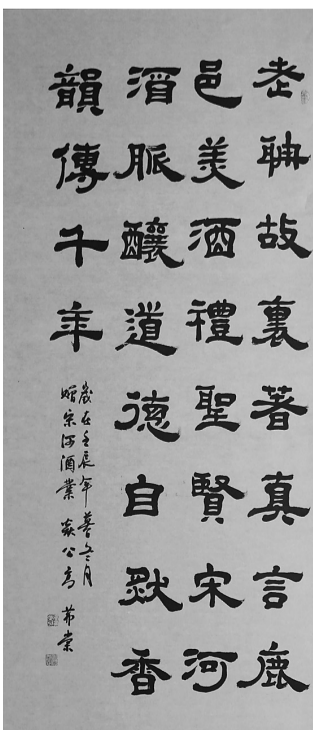 老聃故裏著真言鹿
邑美酒禮聖賢宋河
酒脈釀道德自猷香
韻傳千年
歲在壬辰年暮冬月
贈宋河酒業 公高 業